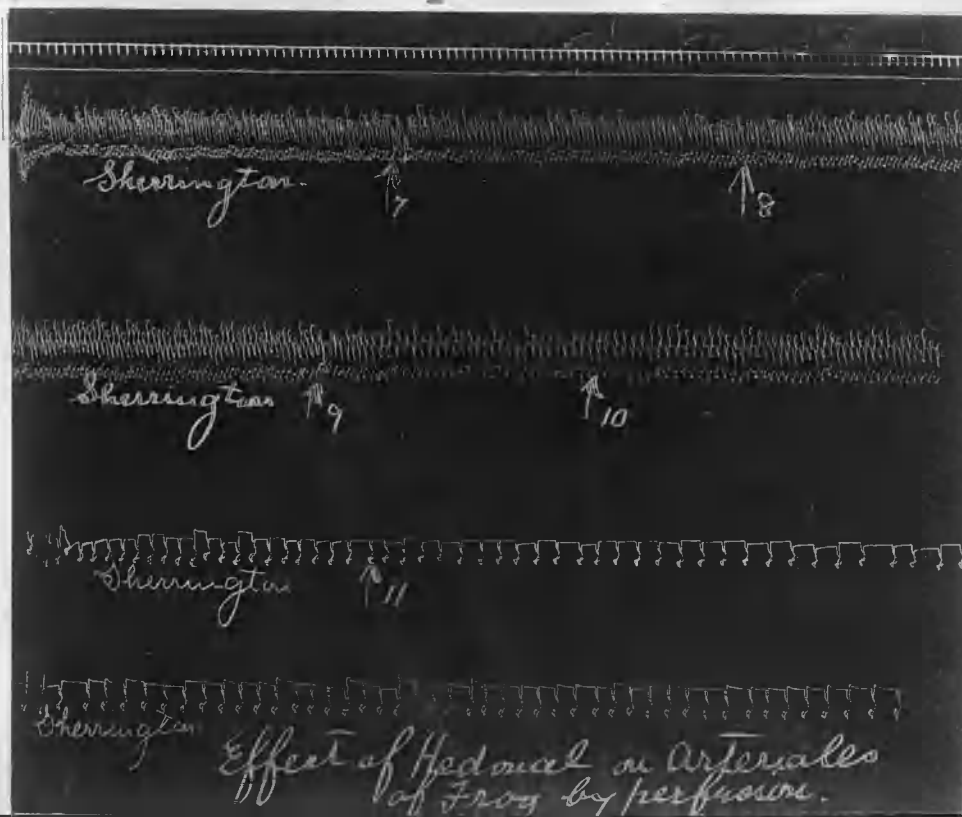 Sherrington.
7
8
Sherrington
9
10
Sherrington
11
Sherrington
Effect of Hedonal on Arterioles
of Frog by perfusion.